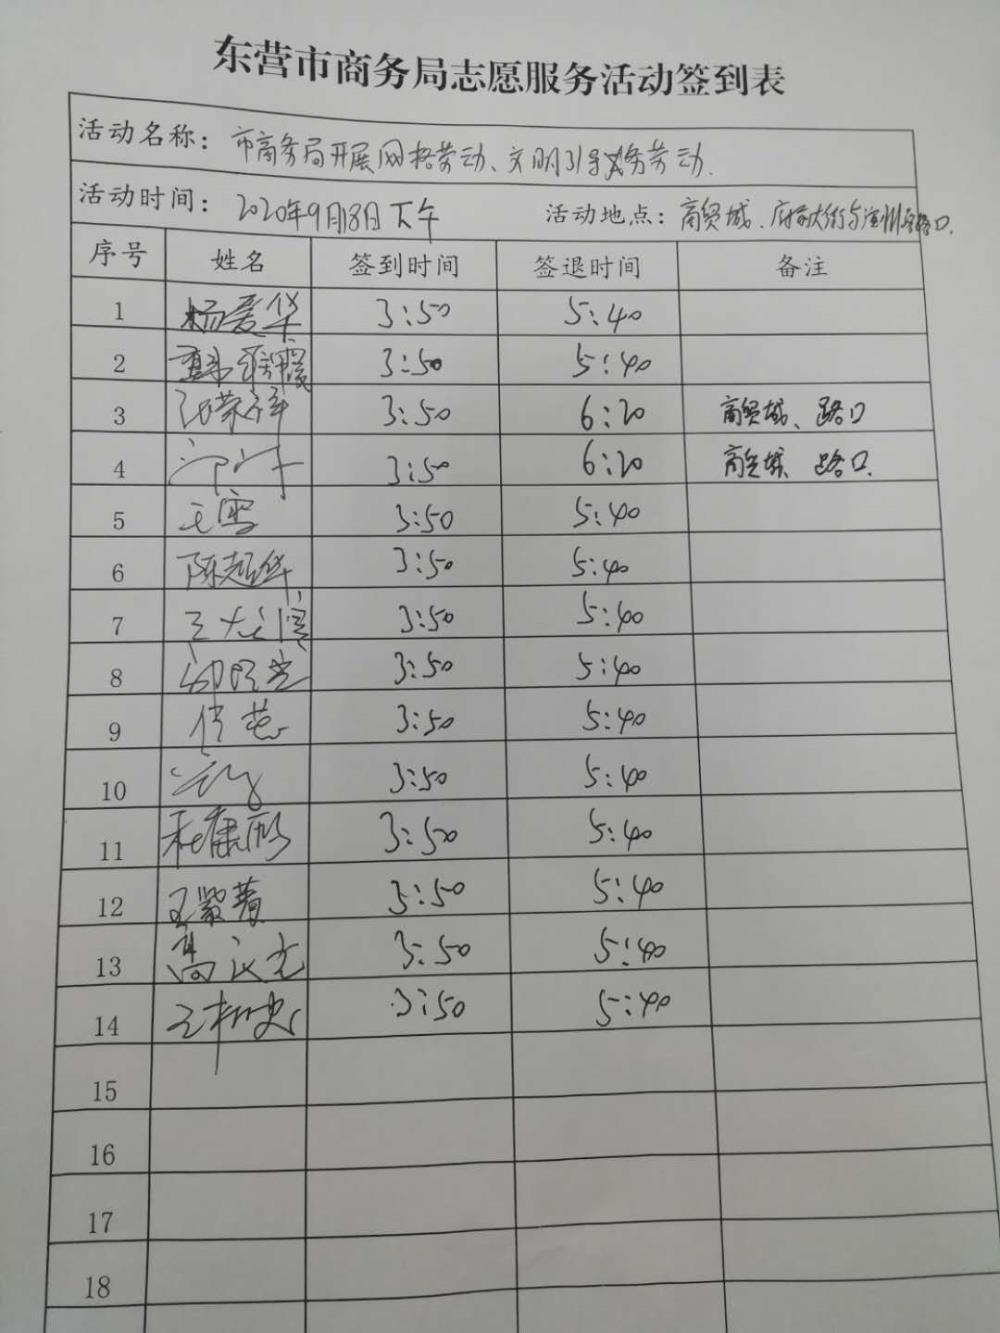 东营市商务局志愿服务活动签到表
活动名称：市商务局开展网格劳动、文明引导义务劳动.
活动时间：2020年9月18日下午 活动地点：商贸城、府前大街与 路口.
序号 姓名 签到时间 签退时间 备注
1 杨爱华 3:50 5:40
2 3:50 5:40
3 3:50 6:20 商贸城、路口
4 3:50 6:20 商贸城、路口.
5 王雪 3:50 5:40
6 陈超华 3:50 5:40
7 3:50 5:40
8 3:50 5:40
9 3:50 5:40
10 3:50 5:40
11 杜康彤 3:50 5:40
12 王紫菁 3:50 5:40
13 3:50 5:40
14 3:50 5:40
15
16
17
18